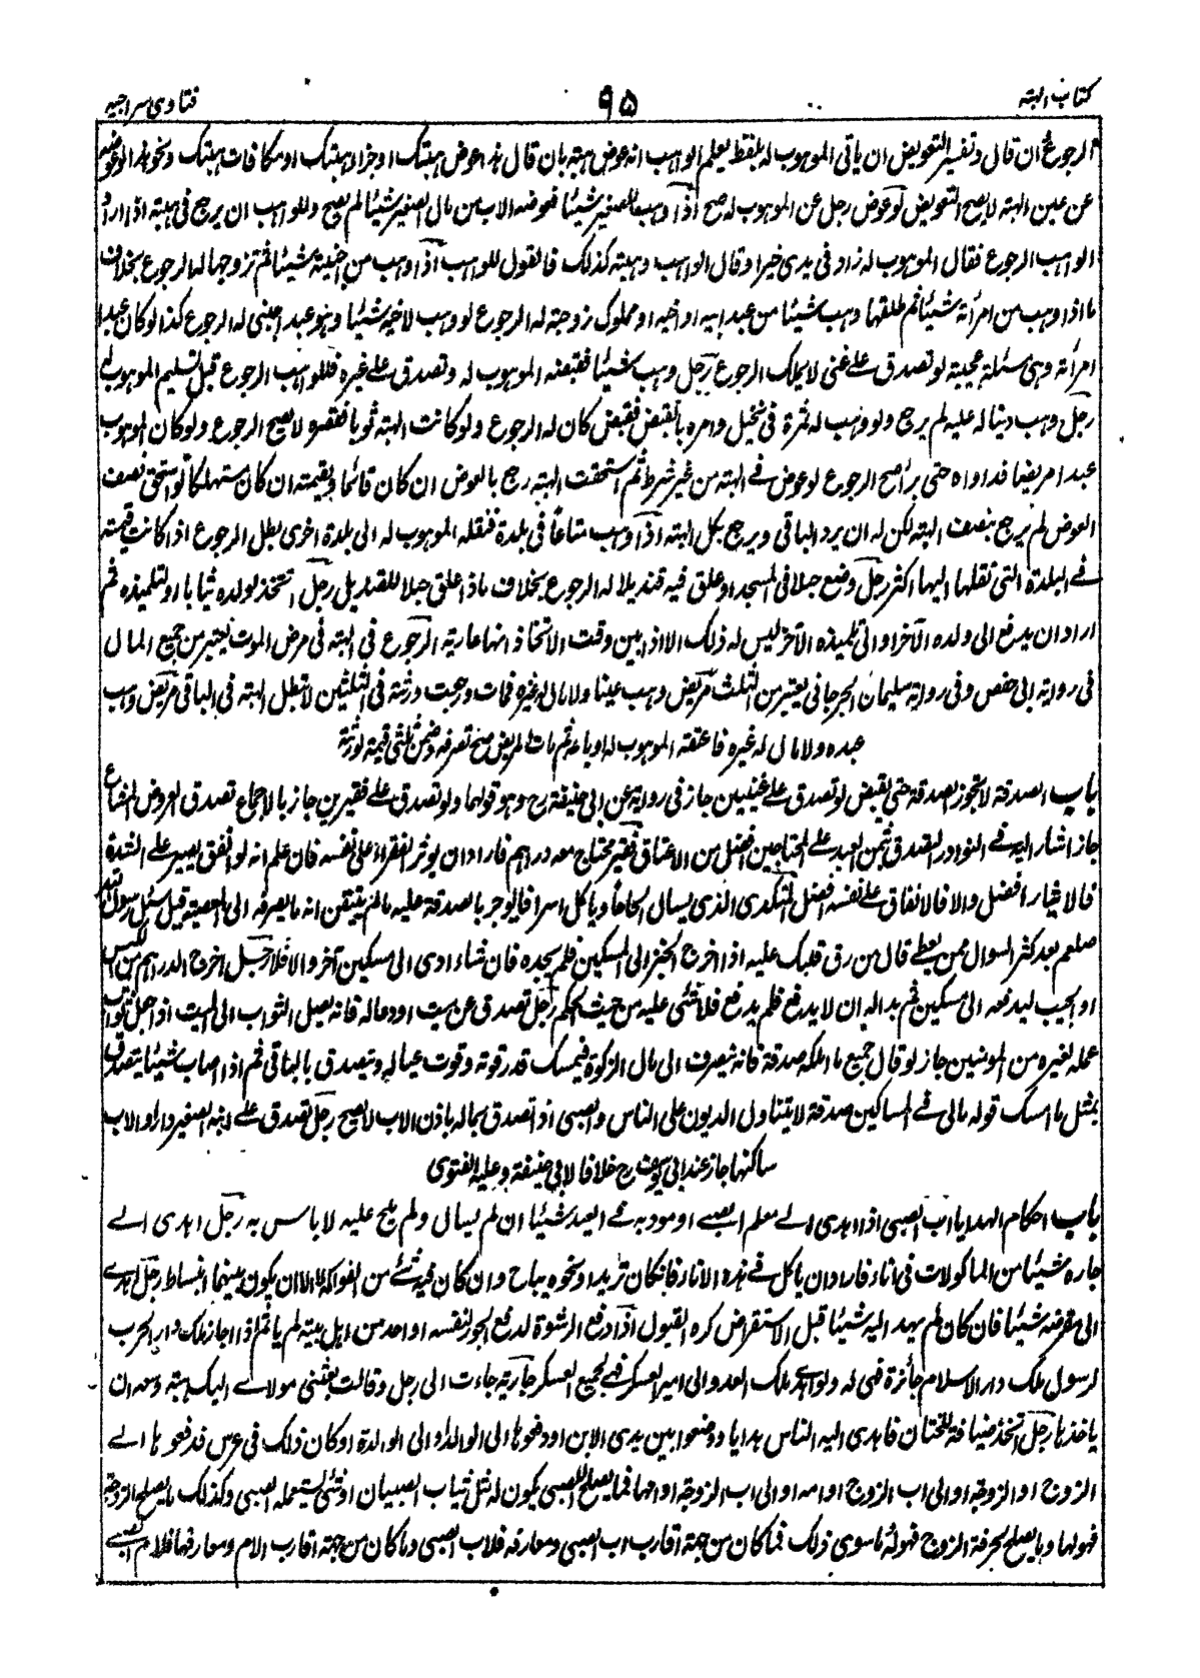 كتاب الهبة
٩٥
فتاوى سراجيه
الرجوع ان قال وتفسير التعويض ان ياتى الموهوب له بلفظ يعلم الواهب انه عوض هبته بان قال هذا عوض هبتك او جزاء هبتك او مكافات هبتك ونحو هذا
عن عين الهبة لا يصح التعويض لو عوض رجل عن الموهوب له صح اذا وهب للصغير شيئا فعوضه الاب من مال الصغير شيئا لم يصح وللواهب ان يرجع فى هبته اذا اراد
الواهب الرجوع فقال الموهوب له زاد فى يدى خيرا وقال الواهب وهبته كذلك فالقول للواهب اذا وهب من اجنبية شيئا ثم تزوجها له الرجوع بخلاف
ما اذا وهب من امرأته شيئا ثم طلقها وهب شيئا من عبد ابيه او اخيه او مملوك زوجة له الرجوع لو وهب لاخيه شيئا وهو عبد اجنبى له الرجوع كذا لو كان عبد
امرأته وهى مسئلة عجيبة لو تصدق على غنى لا يملك الرجوع رجل وهب شيئا فقبضه الموهوب له وتصدق على غيره فللواهب الرجوع قبل تسليم الموهوب له
رجل وهب دينا له عليه لم يرجع ولو وهب له ثمرة فى نخيل وامره بالقبض فقبض كان له الرجوع ولو كانت الهبة ثوبا فقصره لا يصح الرجوع ولو كان الموهوب
عبدا مريضا فداواه حتى برأ صح الرجوع لو عوض فى الهبة من غير شرط ثم استحقت الهبة رجع بالعوض ان كان قائما وبقيمته ان كان مستهلكا لو استحق نصف
العوض لم يرجع بنصف الهبة لكن له ان يرد الباقى ويرجع بكل الهبة اذا وهب متاعا فى بلدة فنقله الموهوب له الى بلدة اخرى بطل الرجوع اذا كانت قيمته
فى البلدة التى نقلها اليها اكثر رجل وضع حبلا فى المسجد او علق فيه قنديلا له الرجوع بخلاف ما اذا علق حبلا للقنديل رجل اتخذ لولده ثيابا او لتلميذه ثم
اراد ان يدفع الى ولده الآخر او الى تلميذه الآخر ليس له ذلك الا اذا بين وقت الاتخاذ انها عارية الرجوع فى الهبة فى مرض الموت يعتبر من جميع المال
فى رواية ابى حفص وفى رواية سليمان الجرجانى يعتبر من الثلث مريض وهب عينا ولا مال له غيره فمات ورجعت ورثته فى الثلثين لا تبطل الهبة فى الباقى مريض وهب
عبده ولا مال له غيره فاعتقه الموهوب له او باعه ثم مات المريض صح تصرفه وضمن ثلثى قيمته لورثته
باب الصدقة لا تجوز الصدقة حتى يقبض لو تصدق على غنيين جاز فى رواية عن ابى حنيفة رح وهو قولهما ولو تصدق على فقيرين جاز بالاجماع تصدق العروض المشاع
جاز اشار اليه فى النوادر التصدق بثمن العبد على المحتاجين افضل من الاعتاق فقير محتاج معه دراهم فاراد ان يوثر الفقراء على نفسه فان علم انه لو انفق يصبر على الشدة
فالايثار افضل والا فالانفاق على نفسه افضل المتكدى الذى يسال الحافا وياكل اسرافا يوجر بالصدقة عليه ما لم يتيقن انه ما يصرفه الى المعصية قيل سئل رسول
صلعم بعد كثر السوال ممن يعطى قال من رق قلبك عليه اذا اخرج الخبز الى المسكين فلم يجده فان شاء ادى الى مسكين آخر والا فلا رجل اخرج الدراهم من
او الجيب ليدفعه الى مسكين ثم بدا له ان لا يدفع فلم يدفع فلا شئ عليه من حيث الحكم رجل تصدق عن ميت او دعا له فانه يصل الثواب الى الميت اذا جعل ثواب
عمله لغيره من المومنين جاز لو قال جميع ما املكه صدقة فانه ينصرف الى مال الزكوة فيمسك قدر قوته وقوت عياله ويتصدق بالباقى ثم اذا اصاب شيئا يتصدق
بمثل ما امسك قوله مالى فى المساكين صدقة لا يتناول الديون على الناس والصبى اذا تصدق بماله باذن الاب لا يصح رجل تصدق على ابنه الصغير دارا والاب
ساكنها جاز عند ابى يوسف رح خلافا لابى حنيفة وعليه الفتوى
باب احكام الهدايا اب الصبى اذا اهدى الى معلم الصبى او مودبه فى العيد شيئا ان لم يسال ولم يلح عليه لا باس به رجل اهدى الى
جاره شيئا من الماكولات فى اناء فاراد ان ياكل فى هذه الاناء فان كان ثريدا ونحوه يباح وان كان فيه شئ من الفواكه لا الا ان يكون بينهما انبساط رجل اهدى
الى مقرضه شيئا فان كان لم يهد اليه شيئا قبل الاستقراض كره القبول اذا دفع الرشوة لدفع الجور لنفسه او احد من اهل بيته لم ياثم اذا اجاز ملك دار الحرب
لرسول ملك دار الاسلام جائزة فهى له ولو اهدى ملك العدو الى امير العسكر فهى لجميع العسكر جارية جاءت الى رجل وقالت بعثنى مولاى اليك هبة وسعه ان
ياخذها رجل اتخذ ضيافة للختان فاهدى اليه الناس هدايا ووضعوا بين يدى الابن او دفعوا الى الوالد او الى الوالدة او كان ذلك فى عرس فدفعوها الى
الزوج او الزوجة او الى اب الزوج او امه او الى اب الزوجة او امها فما يصلح للصبى يكون له مثل ثياب الصبيان او شئ يستعمله الصبى وكذلك ما يصلح الزوجة
فهو لها وما يصلح لحرفة الزوج فهو له ما سوى ذلك فما كان من جهة اقارب اب الصبى ومعارفه فلاب الصبى وما كان من جهة اقارب الام ومعارفها فلام الصبى